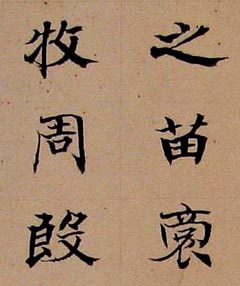 之苗裔
牧周殷